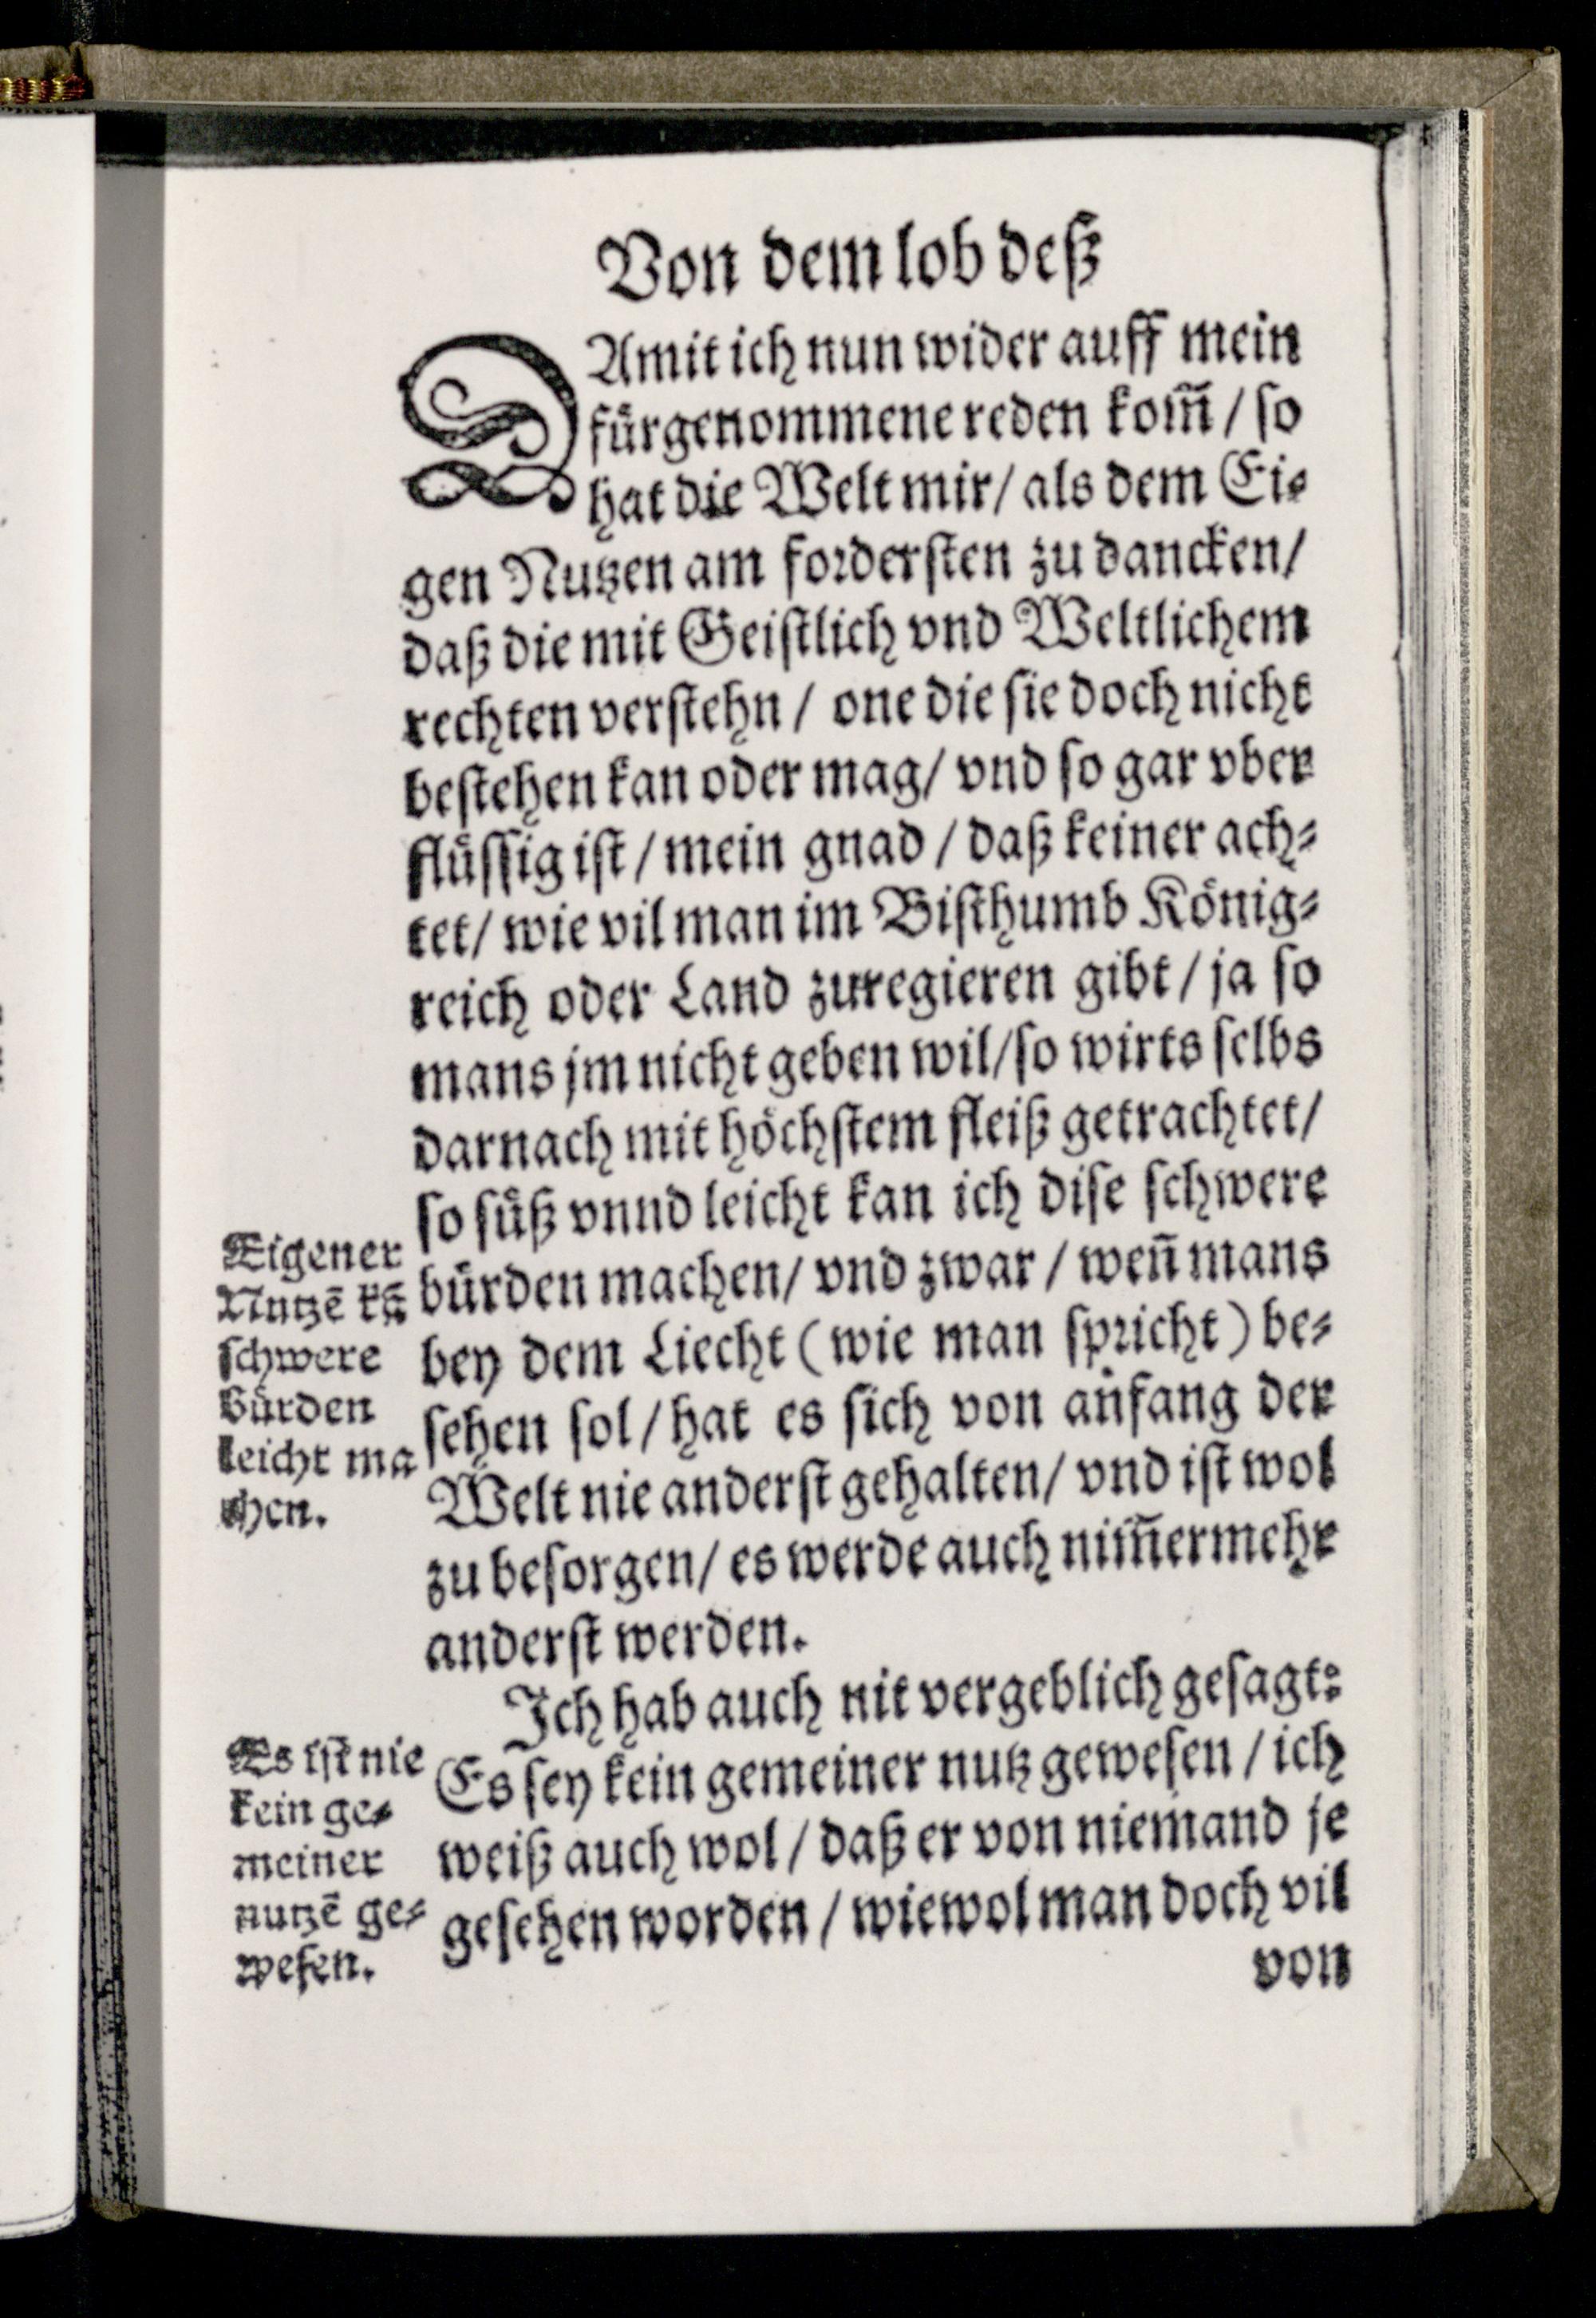 Von dem lob deß
DAmit ich nun wider auff mein
fürgenommene reden kom̃ / ſo
hat die Welt mir / als dem Ei⸗
gen Nutzen am fordersten zu dancken /
daß die mit Geiſtlich vnd Weltlichem
rechten verſtehn / one die ſie doch nicht
beſtehen kan oder mag / vnd ſo gar vber
flüſſig iſt / mein gnad / daß keiner ach⸗
tet / wie vil man im Biſthumb König⸗
reich oder Land zuregieren gibt / ja ſo
mans jm nicht geben wil / ſo wirts ſelbs
darnach mit höchſtem fleiß getrachtet /
ſo ſüß vnnd leicht kan ich diſe ſchwere
bürden machen / vnd zwar / weñ mans
bey dem Liecht (wie man ſpricht) be⸗
ſehen ſol / hat es ſich von anfang der
Welt nie anderſt gehalten / vnd iſt wol
zu beſorgen / es werde auch nim̃ermehr
anderſt werden.
Ich hab auch nit vergeblich geſagt:
Es ſey kein gemeiner nutz geweſen / ich
weiß auch wol / daß er von niemand je
geſehen worden / wiewol man doch vil
von
Eigener
Nutzē kã
ſchwere
bürden
leicht ma
chen.
Es iſt nie
kein ge⸗
meiner
nutzē ge⸗
weſen.